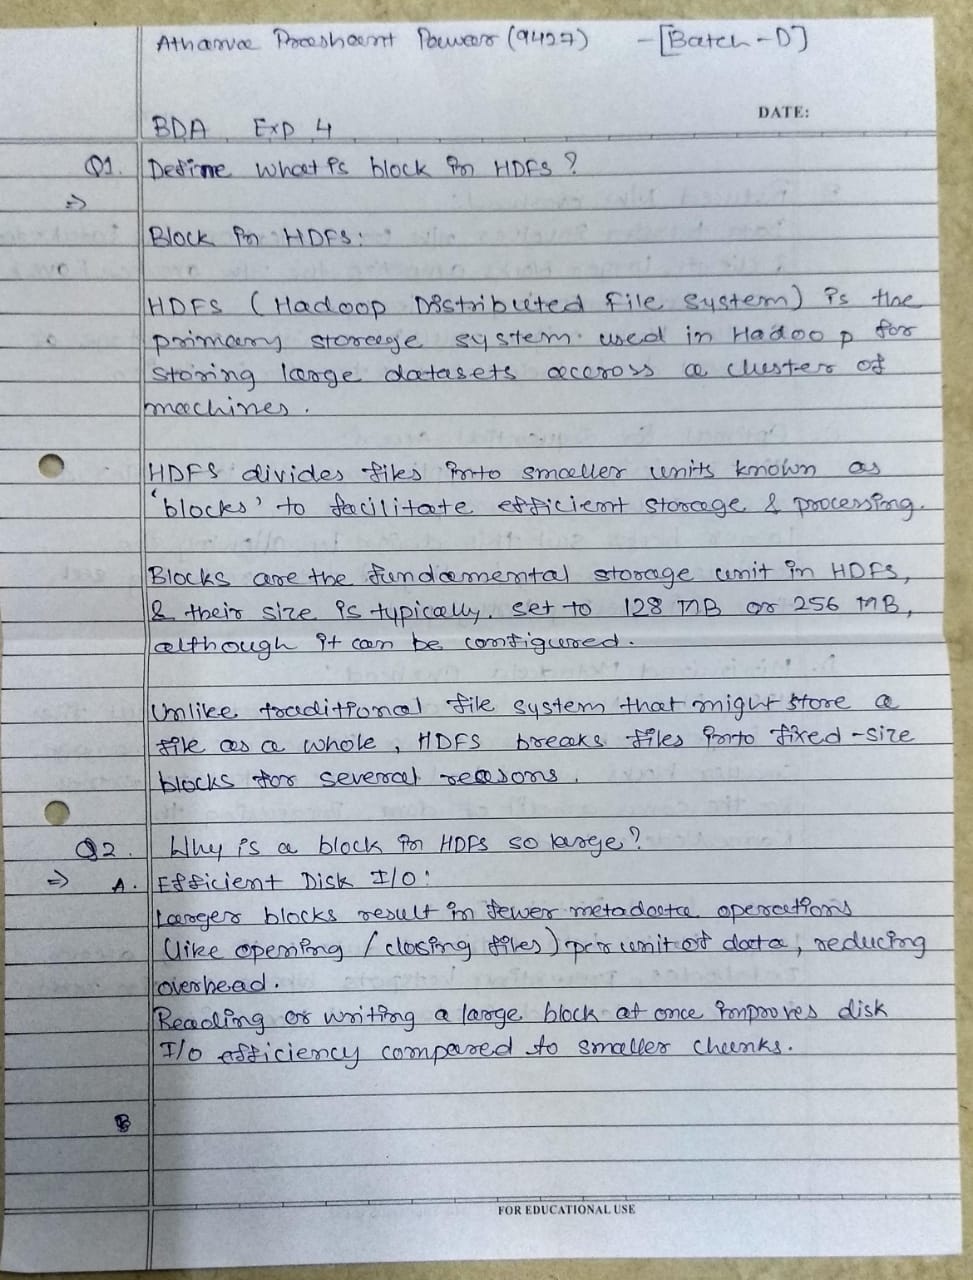 Atharva Prashant Pawar (9427) -[Batch-D]
DATE:
BDA Exp 4
Q1. Define what is block in HDFS?
=>
Block in HDFS:
HDFS (Hadoop Distributed File System) is the
primary storage system used in Hadoop for
storing large datasets accross a cluster of
machines.
HDFS divides files into smaller units known as
'blocks' to facilitate efficient storage & processing.
Blocks are the fundamental storage unit in HDFS,
& their size is typically. set to 128 MB or 256 MB,
although it can be configured.
Unlike traditional file system that might store a
file as a whole, HDFS breaks files into fixed-size
blocks for several reasons.
Q2. Why is a block in HDFS so large?
=> A. Efficient Disk I/O:
Larger blocks result in fewer metadata operations
(like opening / closing files) per unit of data, reducing
overhead.
Reading or writing a large block at once improves disk
I/O efficiency compared to smaller chunks.
B
FOR EDUCATIONAL USE